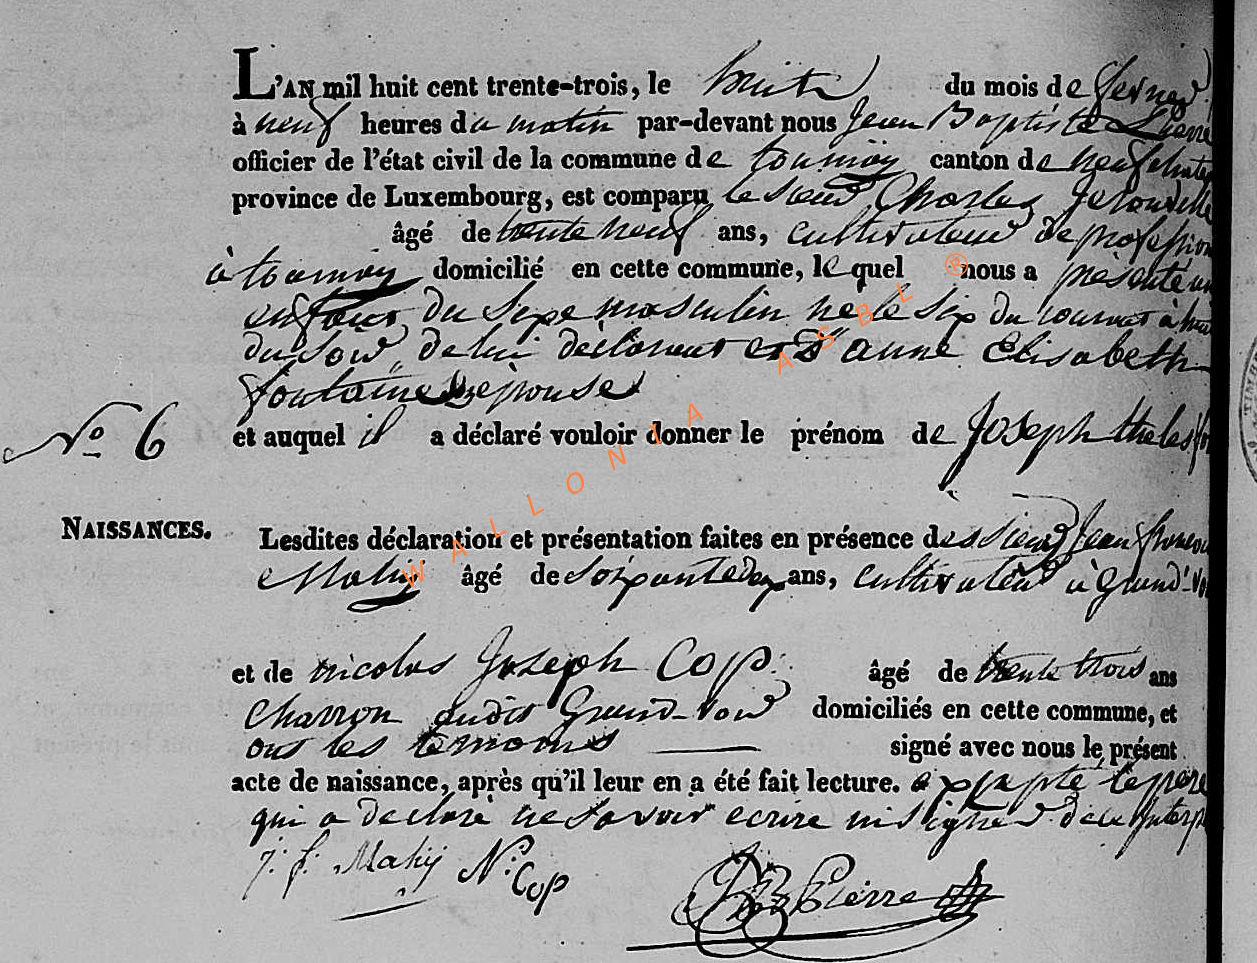 L'AN mil huit cent trente-trois, le huit du mois de fevrier
à neuf heures du matin par-devant nous Jean Baptiste Pierre
officier de l'état civil de la commune de tournay canton de neufchateau
province de Luxembourg, est comparu le sieur Charles Gerouville
âgé de trente neuf ans, cultivateur de profession
à tournay domicilié en cette commune, lequel nous a présenté un
enfant du sexe masculin né le six du courant à huit
du soir, de lui déclarant et d'anne Elisabeth
fontaine épouse
N° 6 et auquel il a déclaré vouloir donner le prénom de Joseph
NAISSANCES. Lesdites déclaration et présentation faites en présence des sieurs Jean francois
Mahy âgé de ans, cultivateur à Grand-voir
et de nicolas Joseph Cop âgé de trente trois ans
charron audit Grand-voir domiciliés en cette commune, et
ont les temoins signé avec nous le présent
acte de naissance, après qu'il leur en a été fait lecture. excepté le pere
qui a declaré ne savoir ecrire ni signer de ce
J. f. Mahy N. Cop JB Pierre
WALLONIA ASBL ®